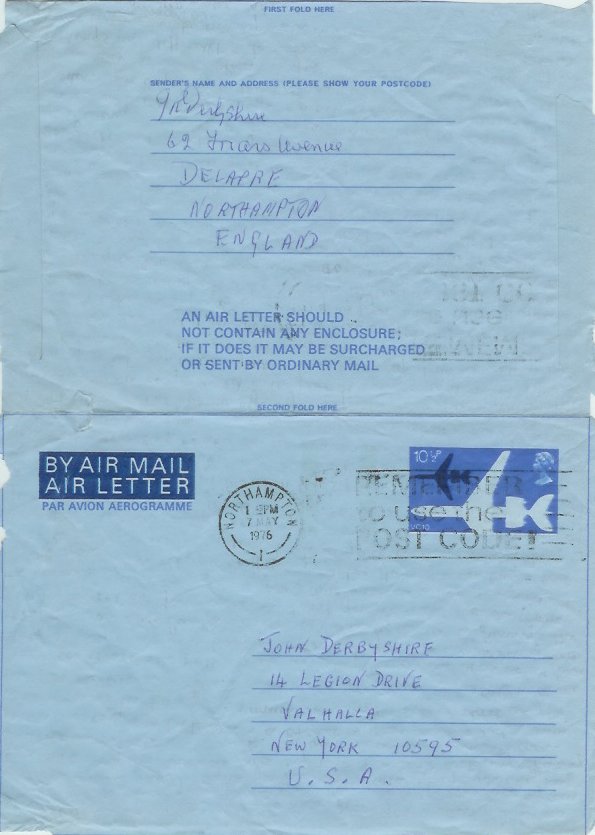 FIRST FOLD HERE
SENDER'S NAME AND ADDRESS (PLEASE SHOW YOUR POSTCODE)
Derbyshire
62 Friars Avenue
DELAPRE
NORTHAMPTON
ENGLAND
AN AIR LETTER SHOULD
NOT CONTAIN ANY ENCLOSURE;
IF IT DOES IT MAY BE SURCHARGED
OR SENT BY ORDINARY MAIL
SECOND FOLD HERE
BY AIR MAIL
AIR LETTER
PAR AVION AEROGRAMME
NORTHAMPTON
PM
7 MAY
1976
1
10½P
VC10
REMEMBER
to use the
POST CODE!
JOHN DERBYSHIRE
14 LEGION DRIVE
VALHALLA
NEW YORK 10595
U.S.A.